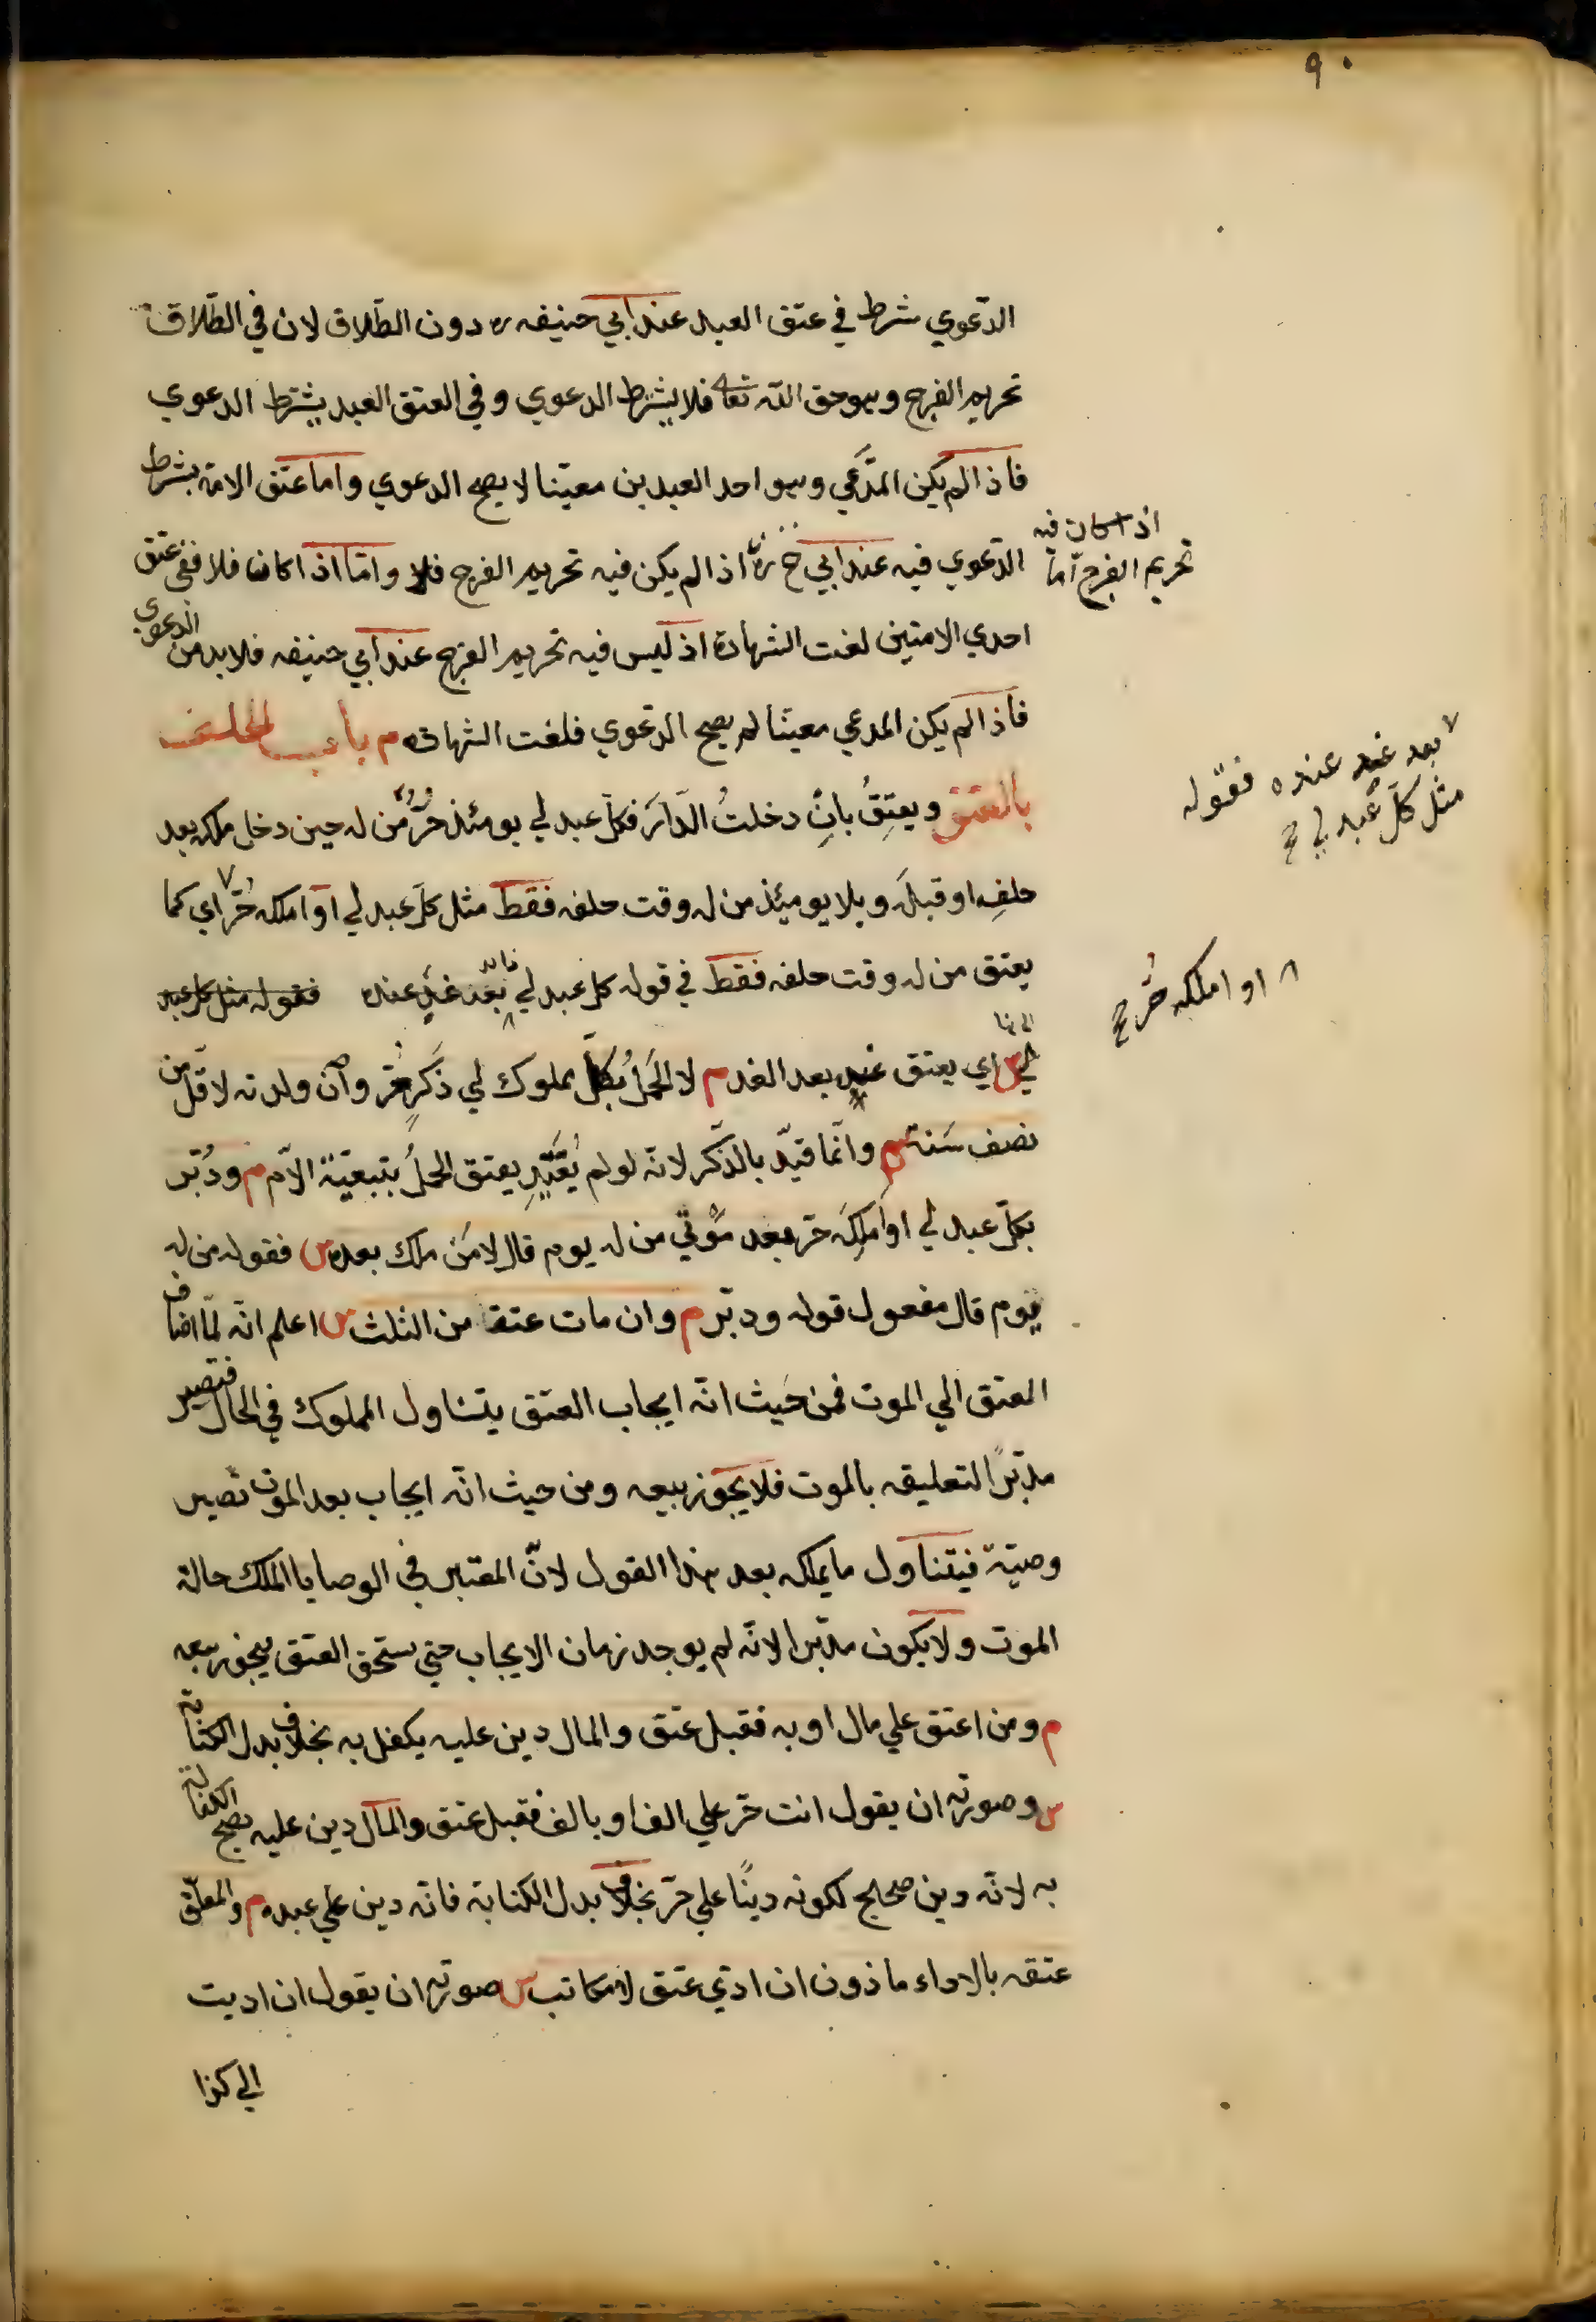 ٩٠
الدّعوي شرط في عتق العبد عند ابي حنيفه ره دون الطّلاق لان في الطّلاق
تحريم الفرج وهو حق الله تعا فلا يشترط الدعوي وفي العتق العبد يشترط الدعوي
فاذا لم يكن المدّعي وهو احد العبدين معيّنا لا يصح الدعوي واما عتق الامة بشرط
الدّعوي فيه عند ابي ح رهّ اذا لم يكن فيه تحريم الفرج فلا وامّا اذا كان فلا ففي عتق
اذا كان فيه
تحريم الفرج امّا
احدي الامتين لغت الشهادة اذ ليس فيه تحريم الفرج عند ابي حنيفه فلا بد من الدعوي
فاذا لم يكن المدعي معيّنا لم يصح الدّعوي فلغت الشهادة م باب الحلف
بالعتق ويعتِقُ بانِ دخلتُ الدّارَ فكلّ عبد لي يومئذ حُرٌّ مَن له حين دخل ملكه بعد
حلفِه او قبلَه وبلا يومئذ من له وقت حلفه فقط مثل كلّ عبد لي او املكه حُرّ اي كما
٧ بعد غد عنده فقوله
مثل كلّ عبد لي صح
يعتق من له وقت حلفه فقط في قوله كل عبد لي بَعْدَ غدٍ عنده فقوله مثل كل عبد
٨ او املكه حُرّ صح
لي س اي يعتق عبد بعد الغد م لا الحَمْلُ بكلّ مملوك لي ذَكَرٍ حُرّ وان ولدته لاقلّ من
نصف سَنة س وانّما قيّد بالذّكر لانّه لو لم يُقَيَّدِ يعتق الحملُ بتبعيّة الامّ م ودُبّر
بكلّ عبد لي او املكه حرّ بعد مَوْتي من له يوم قال لا مَن ملك بعده س فقوله من له
يوم قال مفعول قوله ودبّر م وان مات عتقا من الثلث س اعلم انّه لمّا اضاف
العتق الي الموت فمن حَيث انّه ايجاب العتق يتناول المملوك في الحال فتصير
مدبّرًا لتعليقه بالموت فلا يجوز بيعه ومن حيث انّه ايجاب بعد الموت تصير
وصيّة فيتناول ما يملكه بعد هذا القول لانّ المعتبر في الوصايا الملك حالة
الموت ولا يكون مدبّرا لانّه لم يوجد زمان الايجاب حتي يستحق العتق فيجوز بيعه
م ومن اعتق علي مال او به فقبل عتق والمال دين عليه يكفل به بخلاف بدل الكتابة
س وصورته ان يقول انت حرّ علي الف او بالف فقبل عتق والمال دين عليه يصح الكفالة
به لانّه دين صحيح لكونه دينًا علي حرّ بخلاف بدل الكتابة فانّه دين علي عبده م والمعلّق
عتقه بالاداء ماذون ان ادّي عتق لا مكاتب س صورته ان يقول ان اديت
الي كذا